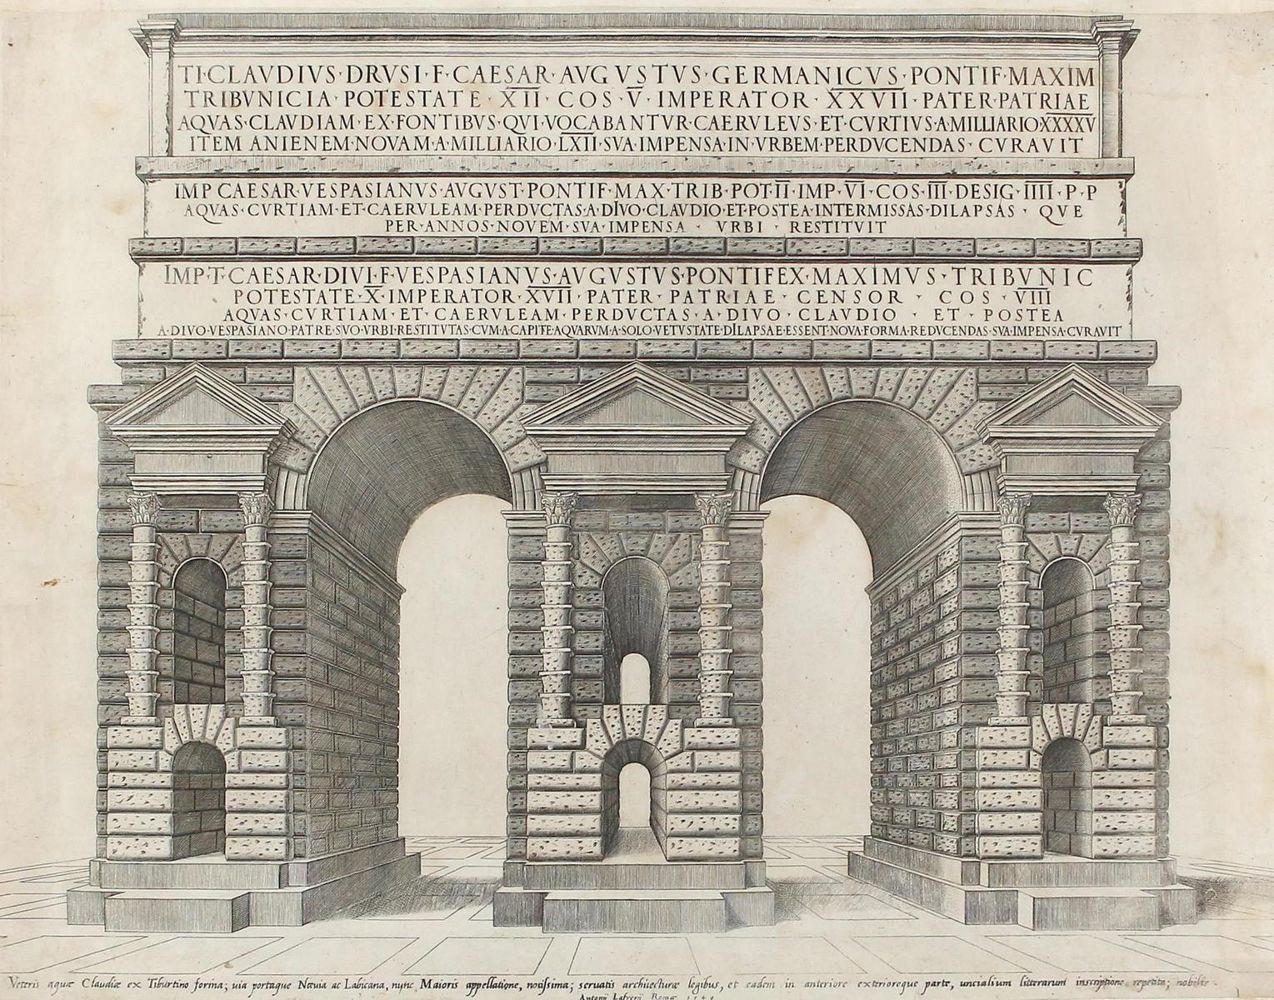 TI·CLAVDIVS·DRVSI·F·CAESAR·AVGVSTVS·GERMANICVS·PONTIF·MAXIM
TRIBVNICIA·POTESTATE·XII·COS·V·IMPERATOR·XXVII·PATER·PATRIAE
AQVAS·CLAVDIAM·EX·FONTIBVS·QVI·VOCABANTVR·CAERVLEVS·ET·CVRTIVS·A·MILLIARIO·XXXXV
ITEM ANIENEM·NOVAM·A·MILLIARIO·LXII·SVA·IMPENSA·IN·VRBEM·PERDVCENDAS·CVRAVIT
IMP·CAESAR·VESPASIANVS·AVGVST·PONTIF·MAX·TRIB·POT·II·IMP·VI·COS·III·DESIG·IIII·P·P
AQVAS·CVRTIAM·ET·CAERVLEAM·PERDVCTAS·A·DIVO·CLAVDIO·ET·POSTEA·INTERMISSAS·DILAPSAS·QVE
PER·ANNOS·NOVEM·SVA·IMPENSA·VRBI·RESTITVIT
IMP·T·CAESAR·DIVI·F·VESPASIANVS·AVGVSTVS·PONTIFEX·MAXIMVS·TRIBVNIC
POTESTATE·X·IMPERATOR·XVII·PATER·PATRIAE·CENSOR·COS·VIII
AQVAS·CVRTIAM·ET·CAERVLEAM·PERDVCTAS·A·DIVO·CLAVDIO·ET·POSTEA
A·DIVO·VESPASIANO·PATRE·SVO·VRBI·RESTITVTAS·CVM·A·CAPITE·AQVARVM·A·SOLO·VETVSTATE·DILAPSAE·ESSENT·NOVA·FORMA·REDVCENDAS·SVA·IMPENSA·CVRAVIT
Veteris aquæ Claudiæ ex Tiburtino forma; uia portaque Næuia ac Labicana, nunc Maioris appellatione, notissima; seruatis architecturæ legibus, et eadem in anteriore exterioreque parte, uncialium litterarum inscriptione repetita; nobilis.
Antonij Lafrerij Romæ